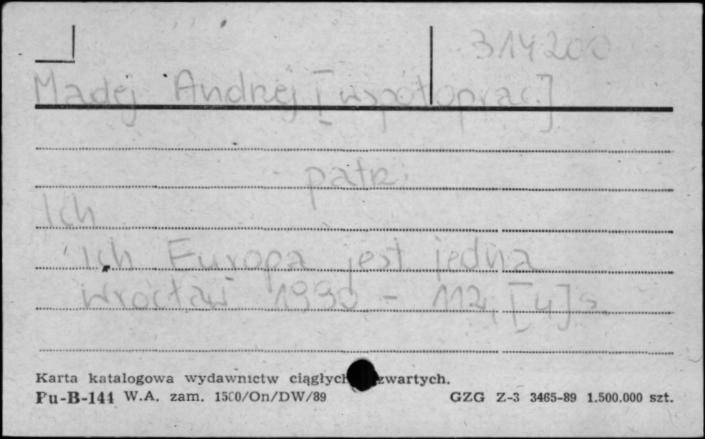 314200
Madej Andrzej [współoprac.]
patrz:
Ich
Ich Europa jest jedna
Wrocław 1990 - 112, [4] s.
Karta katalogowa wydawnictw ciągłych zwartych.
Pu-B-144 W.A. zam. 1500/On/DW/89 GZG Z-3 3465-89 1.500.000 szt.